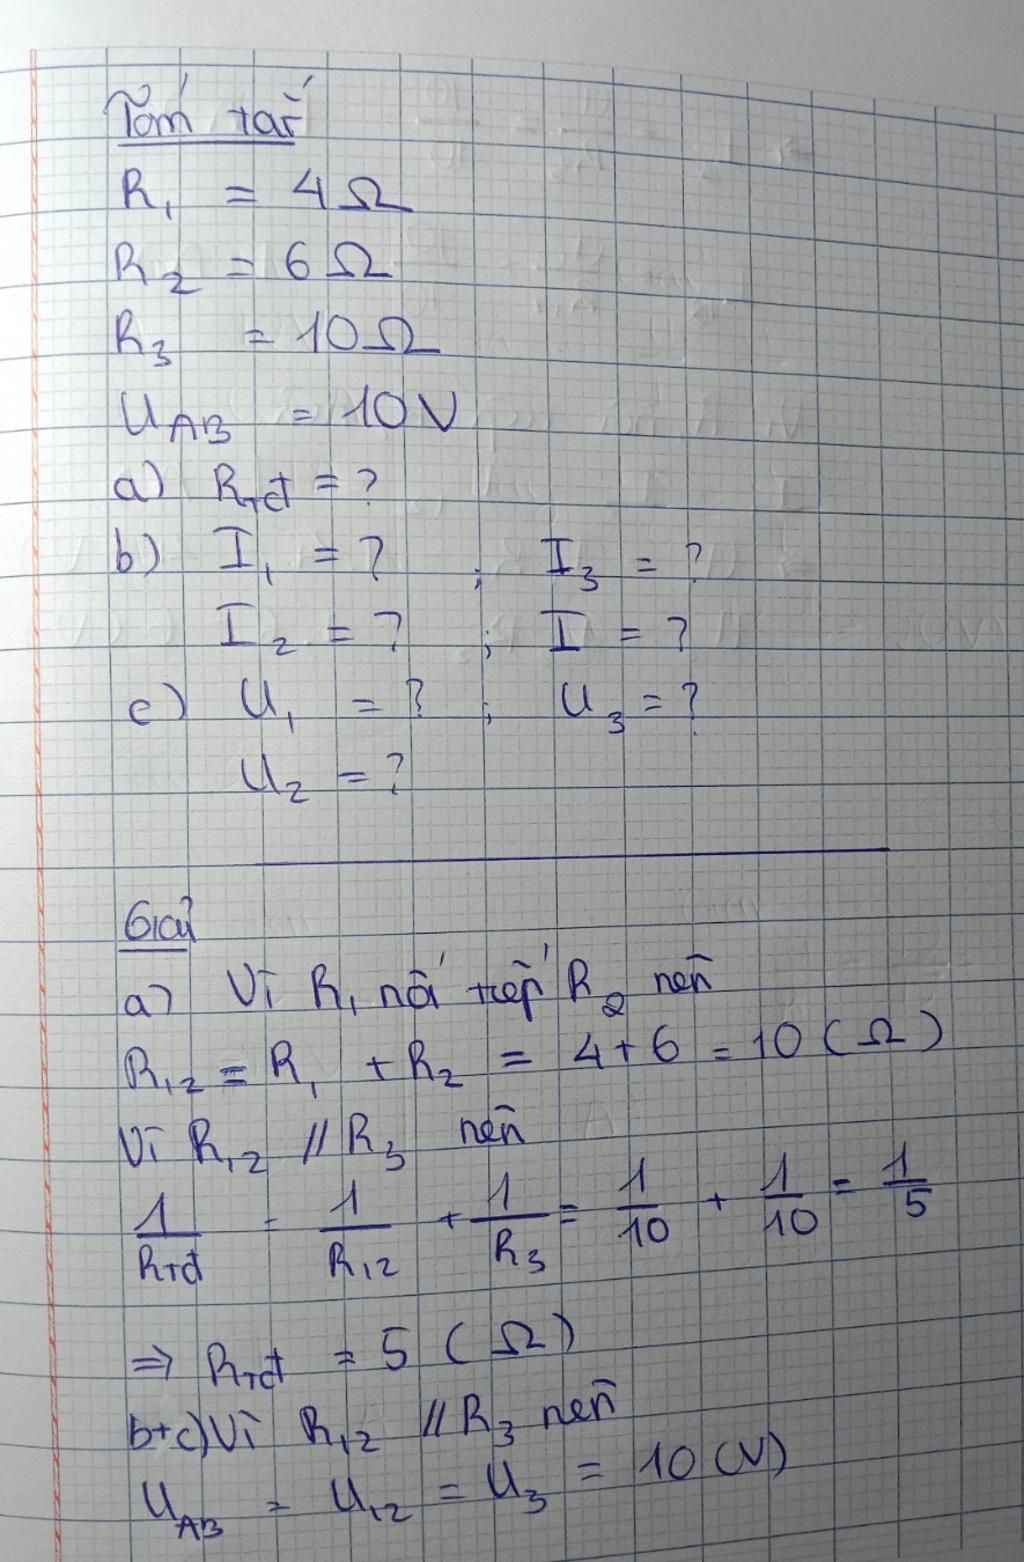 Tóm tắt
R₁ = 4Ω
R₂ = 6Ω
R₃ = 10Ω
U_AB = 10V
a) R_Tđ = ?
b) I₁ = ? ; I₃ = ?
I₂ = ? ; I = ?
c) U₁ = ? ; U₃ = ?
U₂ = ?
Giải
a) Vì R₁ nối tiếp R₂ nên
R₁₂ = R₁ + R₂ = 4+6 = 10 (Ω)
Vì R₁₂ // R₃ nên
1/R_Tđ = 1/R₁₂ + 1/R₃ = 1/10 + 1/10 = 1/5
⇒ R_Tđ = 5 (Ω)
b+c) Vì R₁₂ // R₃ nên
U_AB = U₁₂ = U₃ = 10 (V)